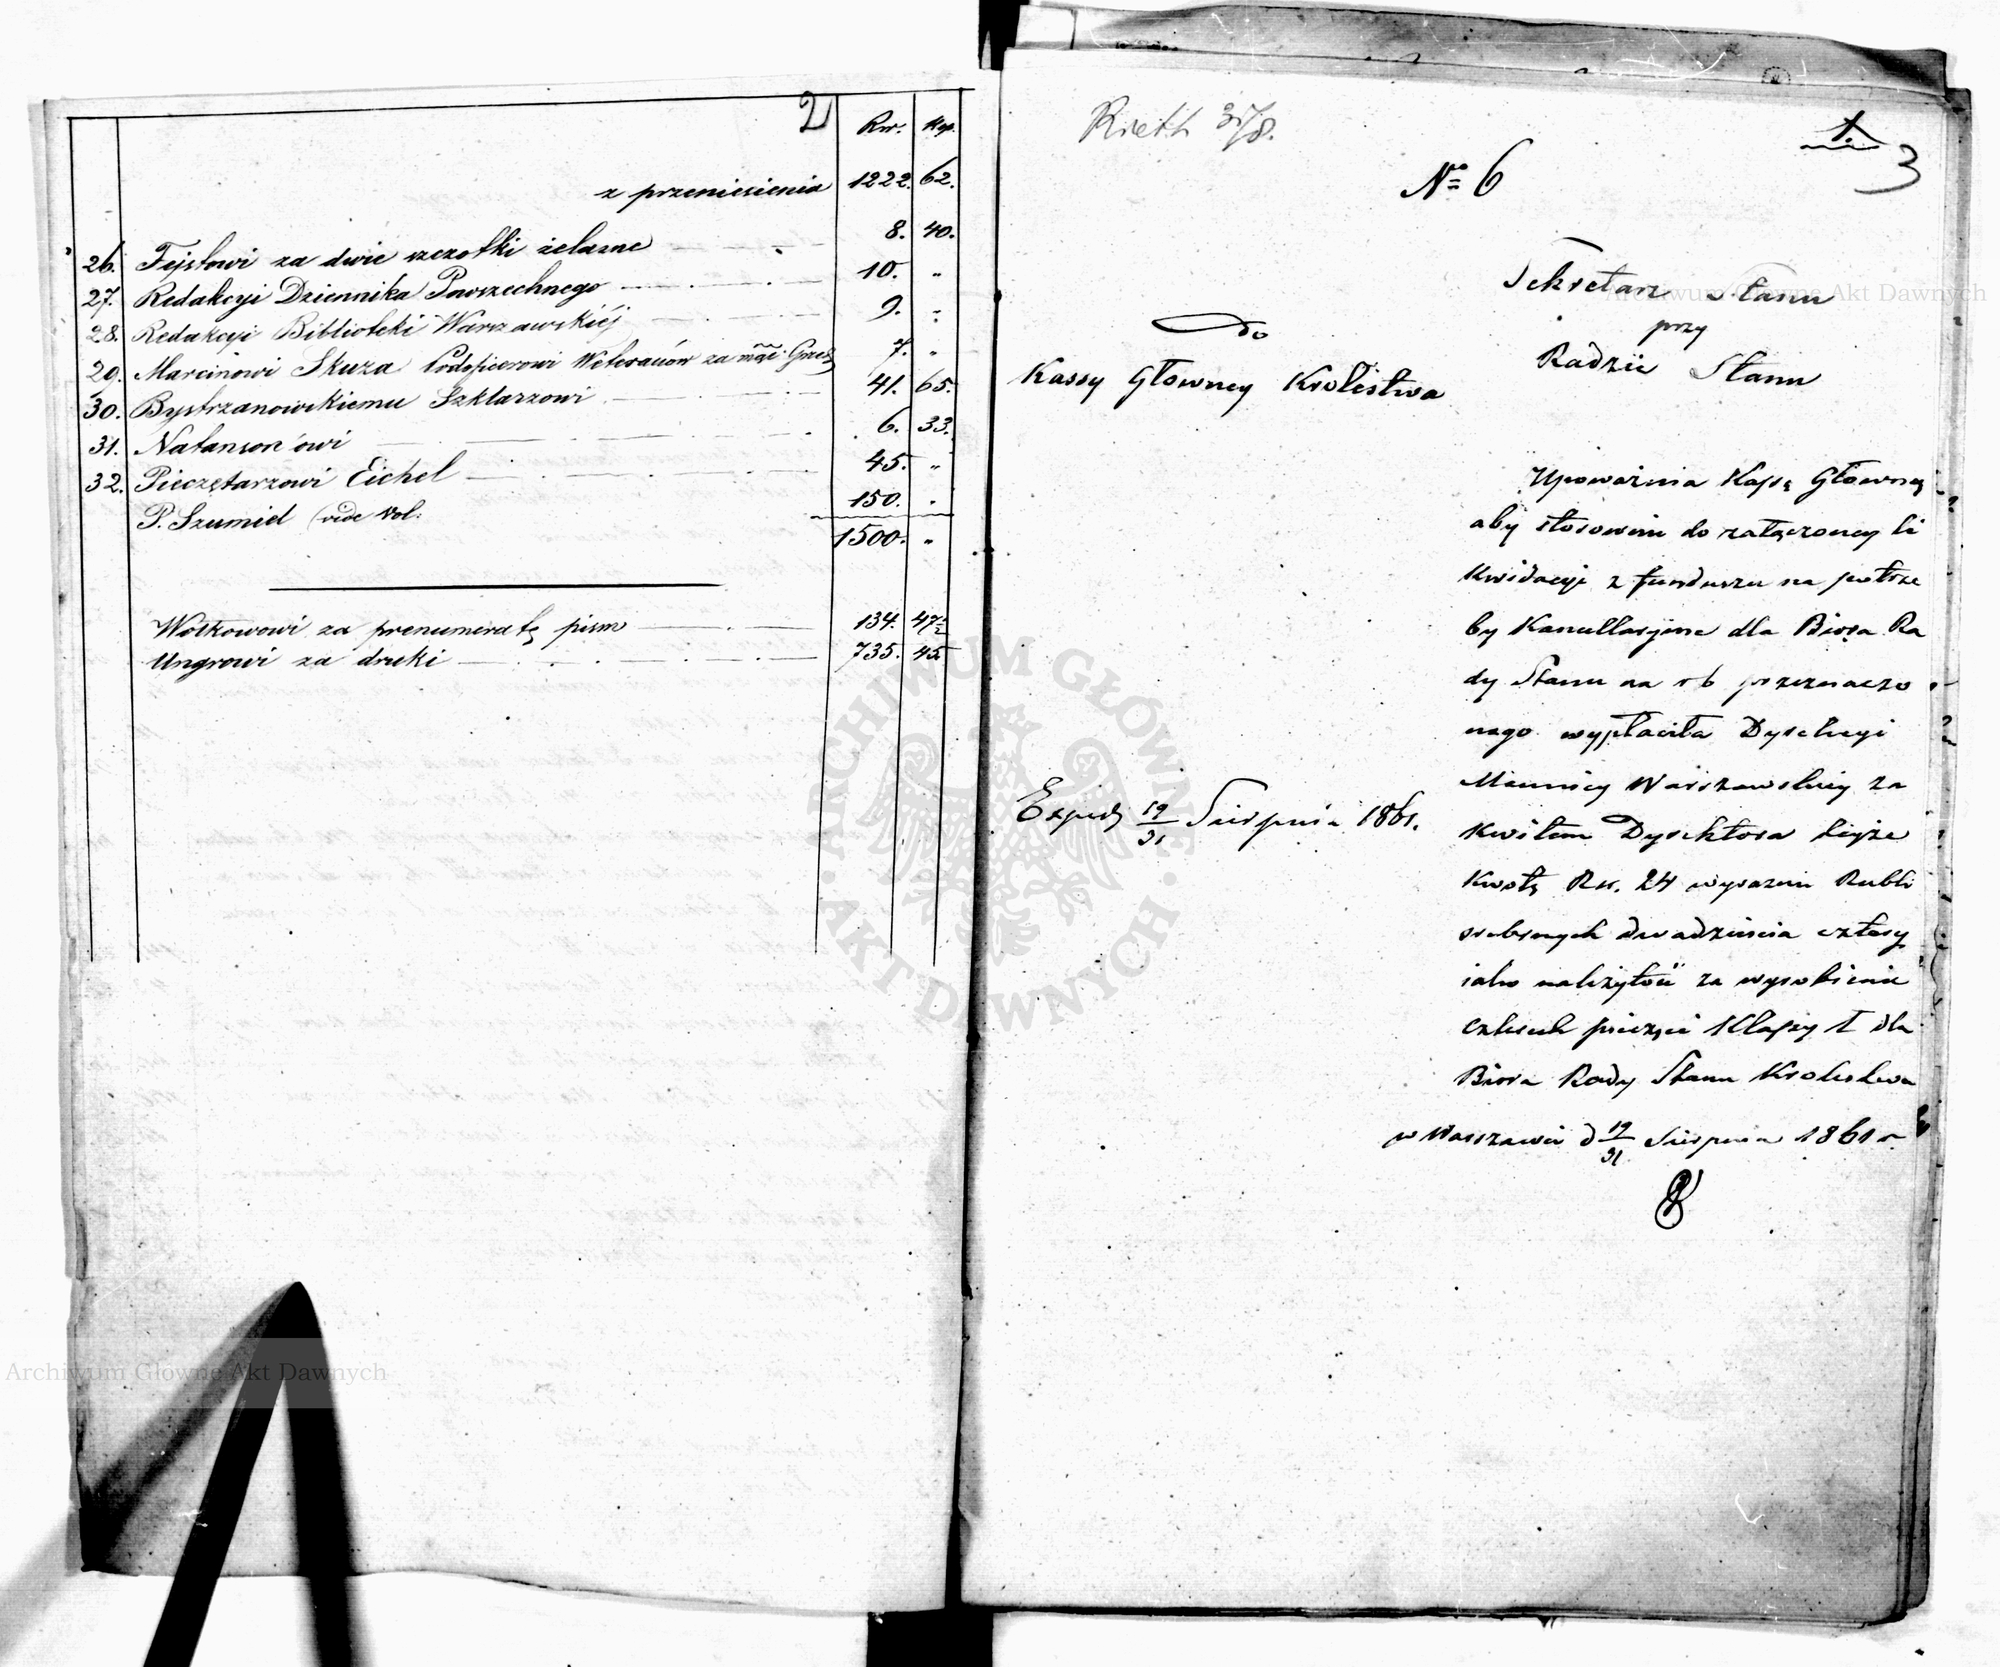 2
Rsr. Kop.
z przeniesienia 1222. 62.
26. Fejstowi za dwie szczotki żelazne 8. 40.
27. Redakcyi Dziennika Powszechnego 10. "
28. Redakcyi Biblioteki Warszawskiéj 9. "
29. Marcinowi Skuza Podoficerowi Weteranów za 7. "
30. Bystrzanowskiemu Szklarzowi 41. 65.
31. Natanson'owi 6. 33.
32. Pieczętarzowi Eichel 45. "
P. Szumiel (vide Vol. 150. "
1500. "
Wołkowowi za prenumeratę pism 134. 47½
Ungrowi za druki 735. 45.
31/8.
1.
3
No 6
Sekretarz Stanu
przy
Radzie Stanu
do
Kassy Głowney Krolestwa
Upoważnia Kassę Głowną
aby stosownie do załączoney li
kwidacyi z funduszu na potrze
by Kancellaryine dla Biora Ra
dy Stanu na r b przeznaczo
nego wypłaciła Dyrekcyi
Mennicy Warszawskiey za
Kwitem Dyrektora teyże
Kwotę Rsr. 24 wyraznie Rubli
srebrnych dwadzieścia cztery
iako należytość za wyrobienie
czterech pieczęci Klassy I dla
Biora Rady Stanu Krolestwa
w Warszawie d 19/31 Sierpnia 1861 r.
Exped 19/31 Sierpnia 1861.
Archiwum Główne Akt Dawnych
ARCHIWUM GŁÓWNE · AKT DAWNYCH ·
Archiwum Główne Akt Dawnych